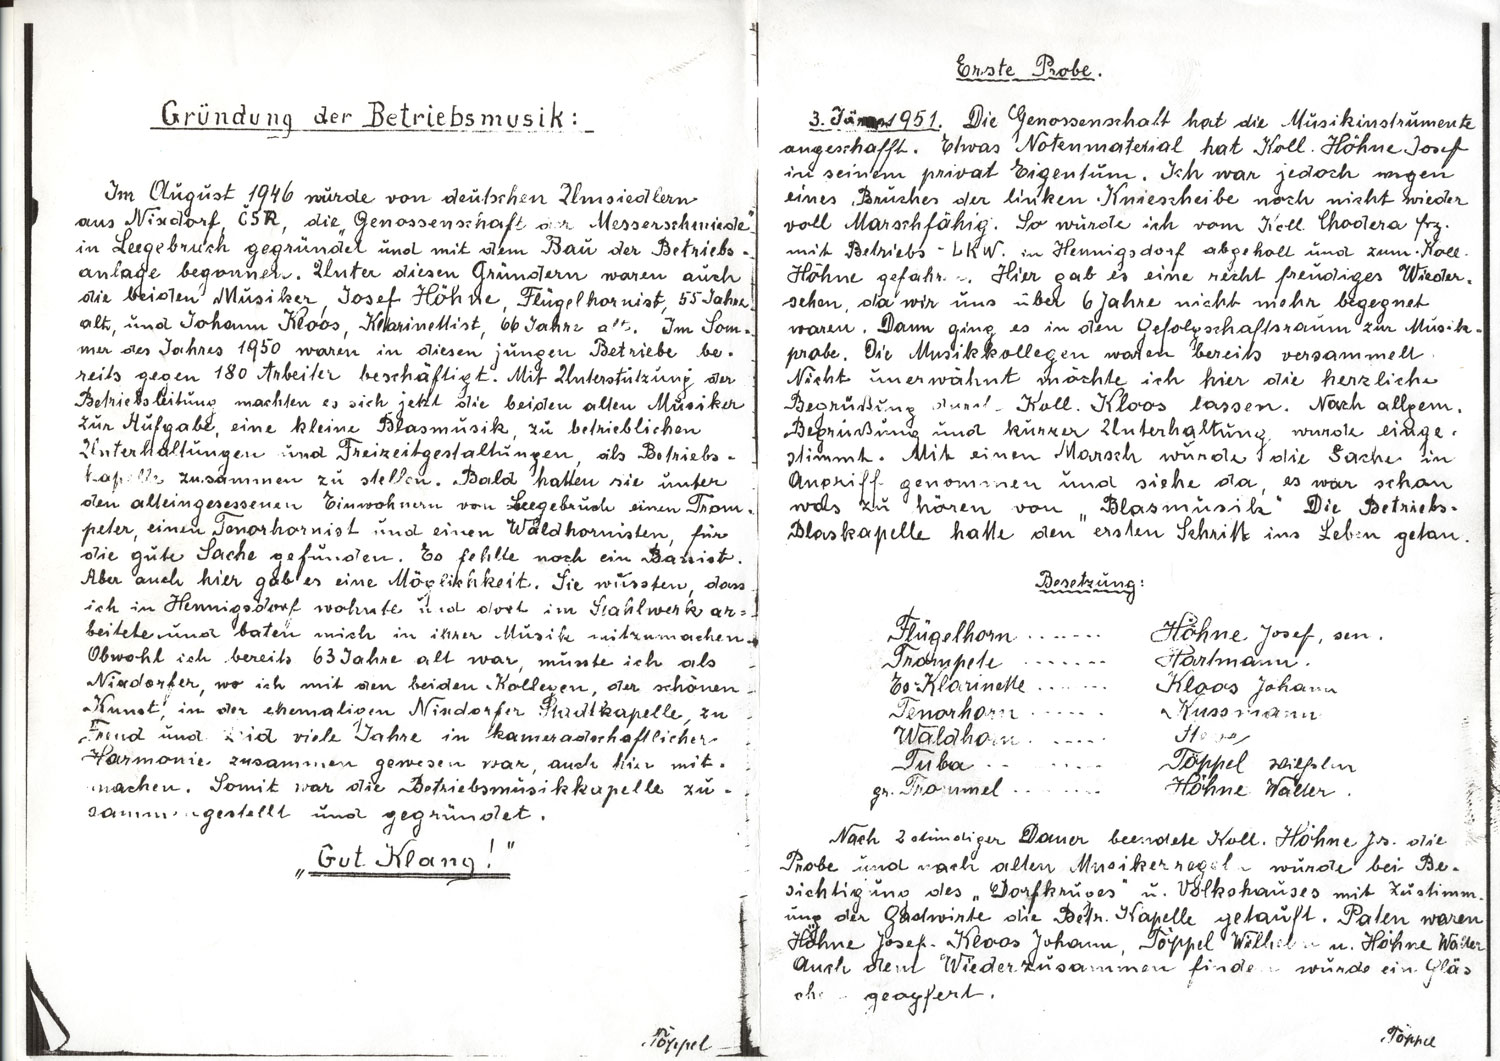 Gründung der Betriebsmusik:
Im August 1946 wurde von deutschen Umsiedlern
aus Nixdorf, ČSR, die „Genossenschaft der Messerschmiede"
in Leegebruch gegründet und mit dem Bau der Betriebs-
anlage begonnen. Unter diesen Gründern waren auch
die beiden Musiker, Josef Höhne, Flügelhornist, 55 Jahre
alt, und Johann Kloos, Klarinettist, 66 Jahre alt. Im Som-
mer des Jahres 1950 waren in diesen jungen Betriebe be-
reits gegen 180 Arbeiter beschäftigt. Mit Unterstützung der
Betriebsleitung machten es sich jetzt die beiden alten Musiker
zur Aufgabe, eine kleine Blasmusik, zu betrieblichen
Unterhaltungen und Freizeitgestaltungen, als Betriebs-
kapelle zusammen zu stellen. Bald hatten sie unter
den alteingesessenen Einwohnern von Leegebruch einen Trom-
peter, einen Tenorhornist und einen Waldhornisten, für
die gute Sache gefunden. Es fehlte noch ein Bassist.
Aber auch hier gab es eine Möglichkeit. Sie wussten, dass
ich in Hennigsdorf wohnte und dort im Stahlwerk ar-
beitete und baten mich in ihrer Musik mitzumachen.
Obwohl ich bereits 63 Jahre alt war, musste ich als
Nixdorfer, wo ich mit den beiden Kollegen, der schönen
Kunst, in der ehemaligen Nixdorfer Stadtkapelle, zu
Freud und Leid viele Jahre in kameradschaftlicher
Harmonie zusammen gewesen war, auch hier mit-
machen. Somit war die Betriebsmusikkapelle zu-
sammengestellt und gegründet.
„Gut Klang!"
Töppel
Erste Probe.
3. Jänner 1951. Die Genossenschaft hat die Musikinstrumente
angeschafft. Etwas Notenmaterial hat Koll. Höhne Josef
in seinem privat Eigentum. Ich war jedoch wegen
eines Bruches der linken Kniescheibe noch nicht wieder
voll Marschfähig. So wurde ich vom Koll. Chodera frz.
mit Betriebs-LKW. in Hennigsdorf abgeholt und zum Koll.
Höhne gefahren. Hier gab es eine recht freudiges Wieder-
sehen, da wir uns über 6 Jahre nicht mehr begegnet
waren. Dann ging es in den Gefolgschaftsraum zur Musik-
probe. Die Musikkollegen waren bereits versammelt.
Nicht unerwähnt möchte ich hier die herzliche
Begrüßung durch Koll. Kloos lassen. Nach allgem.
Begrüßung und kurzer Unterhaltung wurde einge-
stimmt. Mit einen Marsch wurde die Sache in
Angriff genommen und siehe da, es war schon
was zu hören von „Blasmusik" Die Betriebs-
Blaskapelle hatte den ersten Schritt ins Leben getan.
Besetzung:
Flügelhorn ....... Höhne Josef, sen.
Trompete ....... Hartmann.
Es-Klarinette ....... Kloos Johann
Tenorhorn ....... Kussmann
Waldhorn .......
Tuba ....... Töppel Wilhelm
gr. Trommel ....... Höhne Walter.
Nach 2 stündiger Dauer beendete Koll. Höhne Js. die
Probe und nach alten Musikerregeln wurde bei Be-
sichtigung des „Dorfkruges" u. Volkshauses mit Zustimm-
ung der Gastwirte die Betr. Kapelle getauft. Paten waren
Höhne Josef. Kloos Johann, Töppel Wilhelm u. Höhne Walter
Auch dem Wiederzusammen finden wurde ein Gläs
chen geopfert.
Töppel